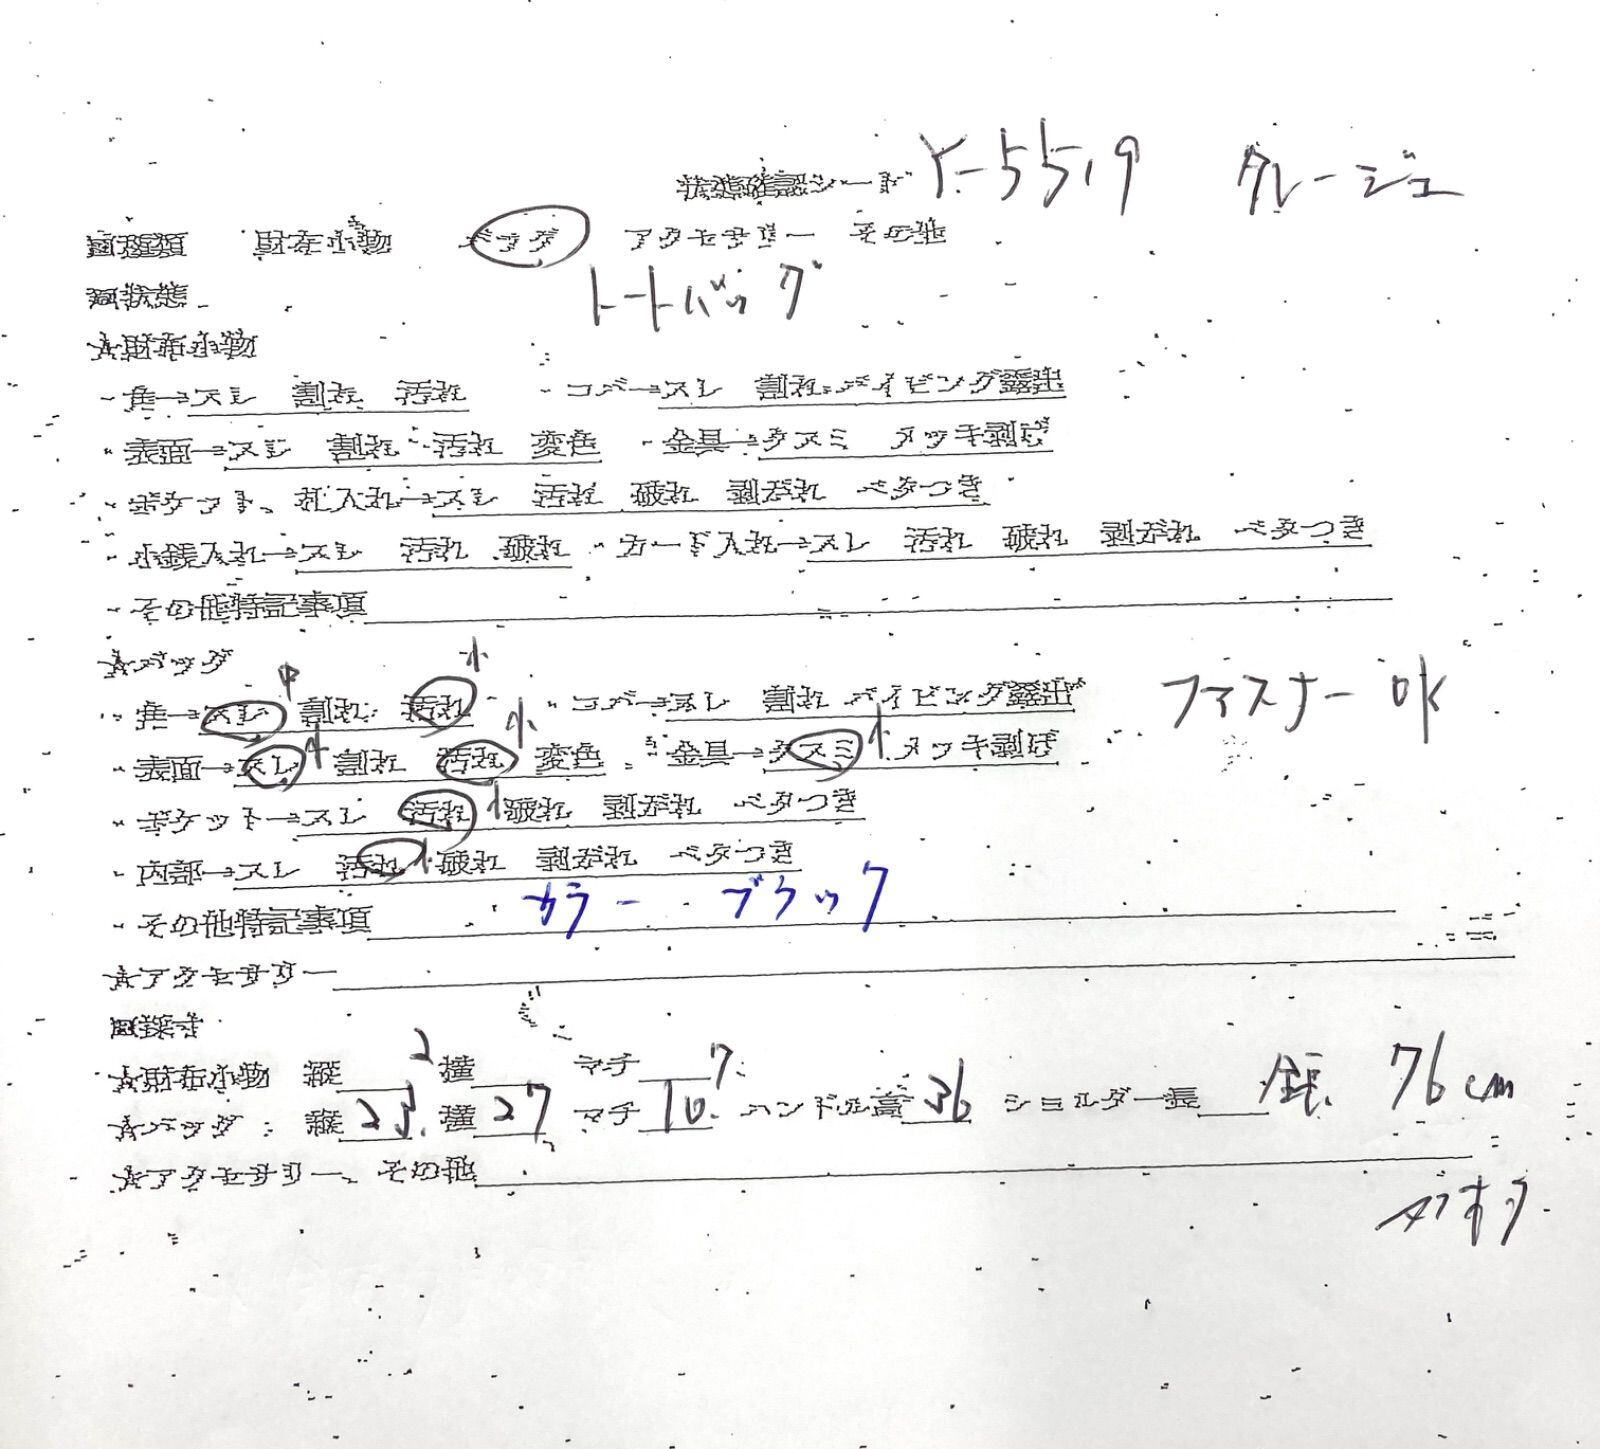 状態確認シート Y-5519 クレージュ
■種類 財布小物 バッグ アクセサリー その他
■状態 トートバッグ
★財布小物
・角→スレ 割れ 汚れ ・コバ→スレ 割れ パイピング露出
・表面→スレ 割れ 汚れ 変色 ・金具→クスミ メッキ剥げ
・ポケット、札入れ→スレ 汚れ 破れ 剥がれ ベタつき
・小銭入れ→スレ 汚れ 破れ ・カード入れ→スレ 汚れ 破れ 剥がれ ベタつき
・その他特記事項
★バッグ
・角→スレ 中 割れ 汚れ 小 ・コバ→スレ 割れ パイピング露出 ファスナー OK
・表面→スレ 割れ 汚れ 小 変色 ・金具→クスミ 小 メッキ剥げ
・ポケット→スレ 汚れ 小 破れ 剥がれ ベタつき
・内部→スレ 汚れ 小 破れ 剥がれ ベタつき
・その他特記事項 カラー ブラック
★アクセサリー
■採寸
★財布小物 縦 横 マチ
★バッグ 縦 23. 横 27 マチ 10. ハンドル高 36 ショルダー長 全長 76cm
★アクセサリー、その他